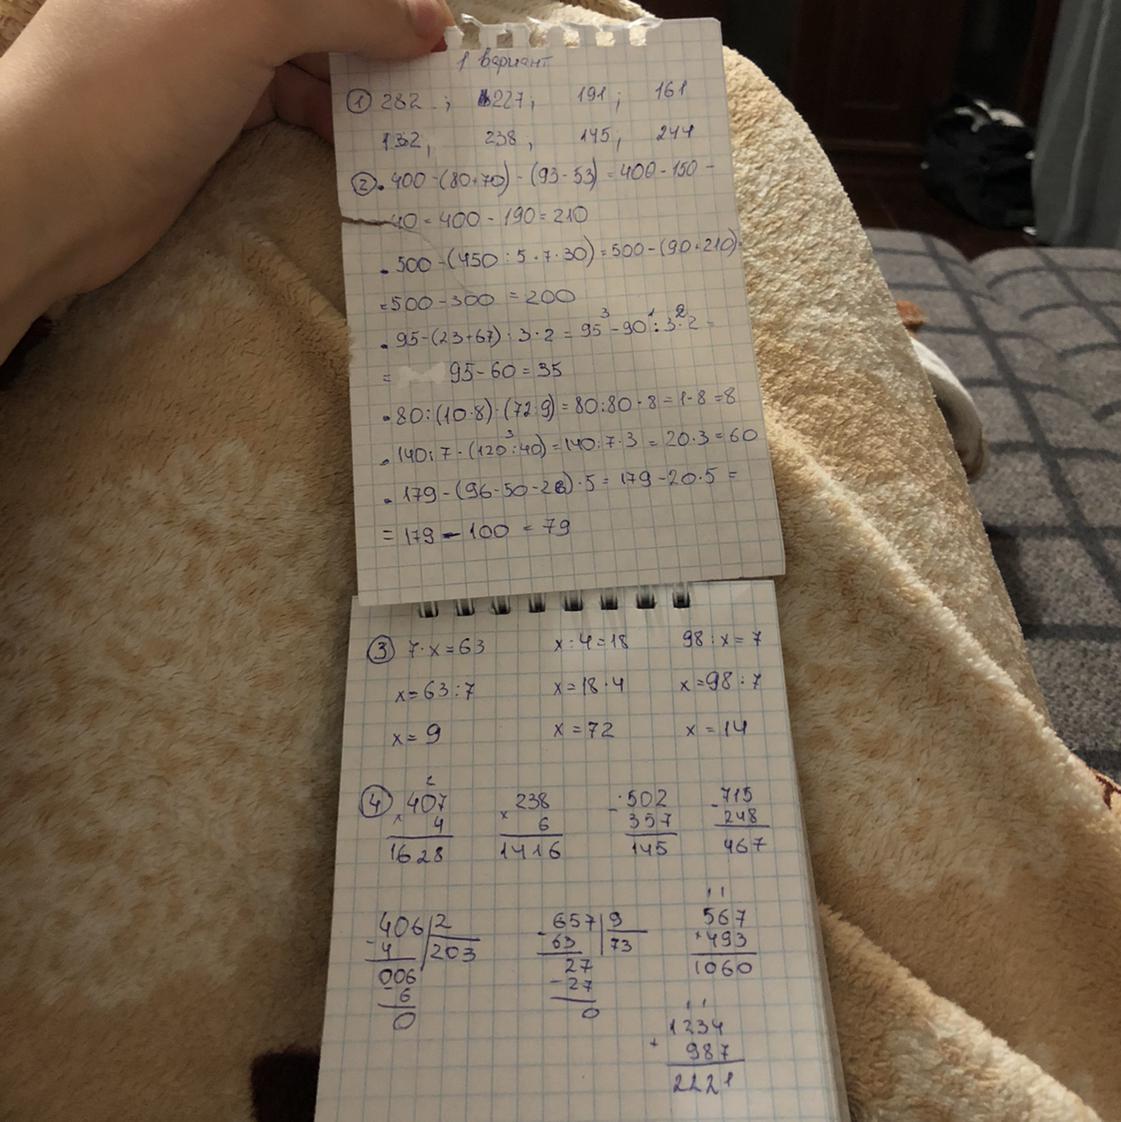 1 вариант
① 282 ; 227; 191; 161
132, 238; 145; 244
② • 400-(80+70)-(93-53)=400-150-
-40=400-190=210
• 500-(450:5+7·30)=500-(90+210)=
=500-300=200
• 95-(23+67):3·2=95-90:3·2=
= 95-60=35
• 80:(10·8)·(72:9)=80:80·8=1·8=8
• 140:7·(120:40)=140:7·3=20·3=60
• 179-(96-50-26)·5=179-20·5=
=179-100=79
③ 7·x=63 x:4=18 98:x=7
x=63:7 x=18·4 x=98:7
x=9 x=72 x=14
④ 407 238 502 715
× 4 × 6 - 357 - 248
1628 1416 145 467
406|2 657|9 567
-4 203 - 63 73 +493
006 27 1060
-6 -27
0 0 1234
+ 987
2221